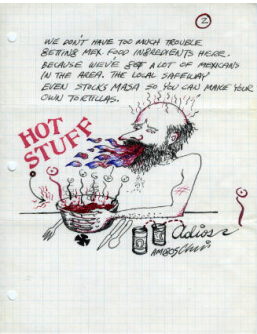 2
WE DON'T HAVE TOO MUCH TROUBLE
GETTING MEX FOOD INGREDIENTS HERE.
BECAUSE WE'VE GOT A LOT OF MEXICANS
IN THE AREA. THE LOCAL SAFEWAY
EVEN STOCKS MASA SO YOU CAN MAKE YOUR
OWN TORTILLAS.
HOT
STUFF
Adios
AMIGOS